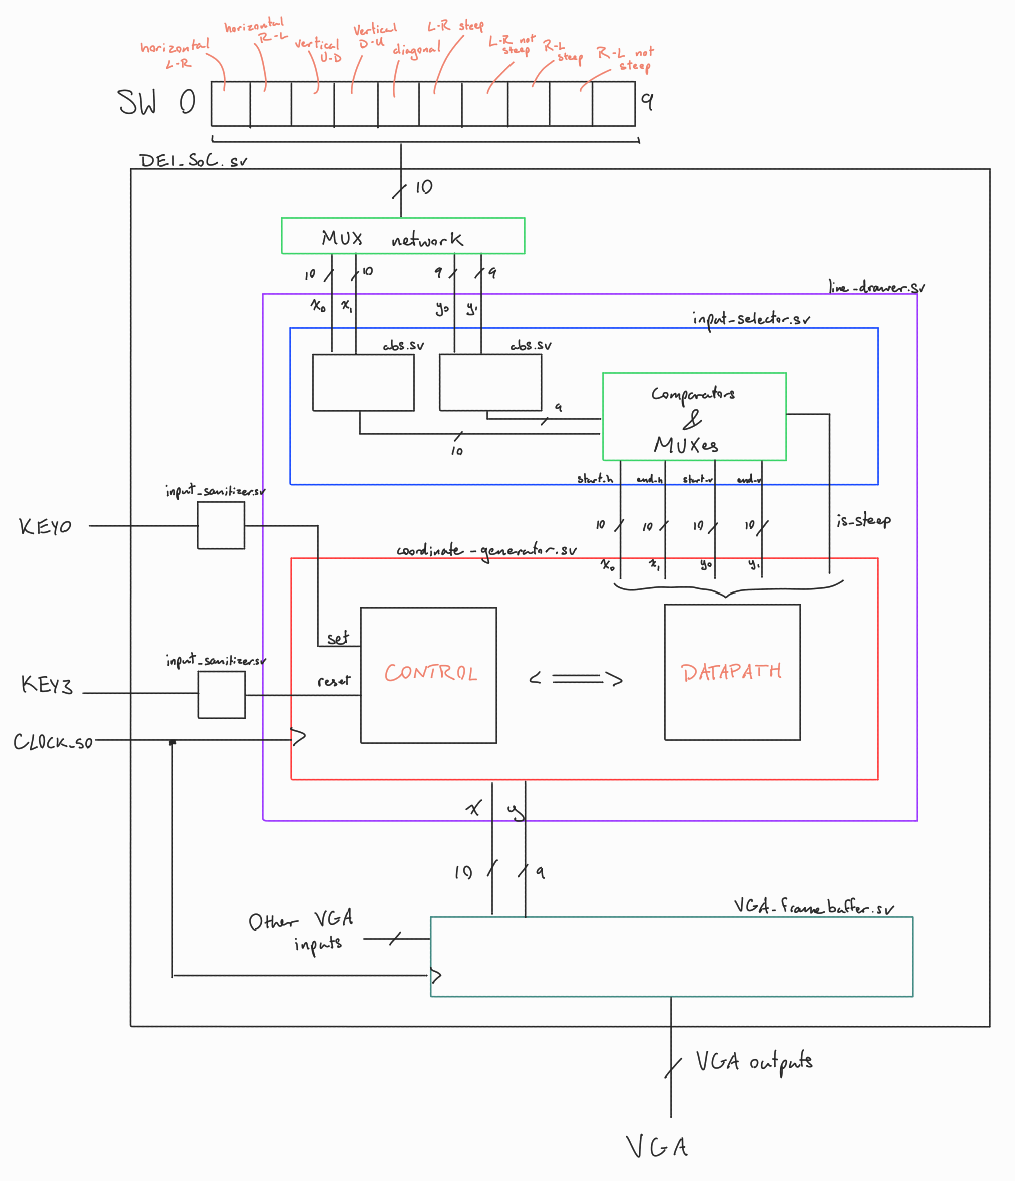 horizontal
L-R
horizontal
R-L
vertical
U-D
Vertical
D-U
diagonal
L-R steep
L-R not
steep
R-L
steep
R-L not
steep
SW 0
9
DE1_SoC.sv
10
MUX network
10
10
9
9
line_drawer.sv
x0
x1
y0
y1
input_selector.sv
abs.sv
abs.sv
Comparators
&
MUXes
9
10
start_h
end_h
start_v
end_v
input_sanitizer.sv
KEY0
10
10
10
10
is_steep
coordinate_generator.sv
x0
x1
y0
y1
set
input_sanitizer.sv
CONTROL
<===>
DATAPATH
KEY3
reset
CLOCK_50
x
y
10
9
VGA_framebuffer.sv
Other VGA
inputs
VGA outputs
VGA